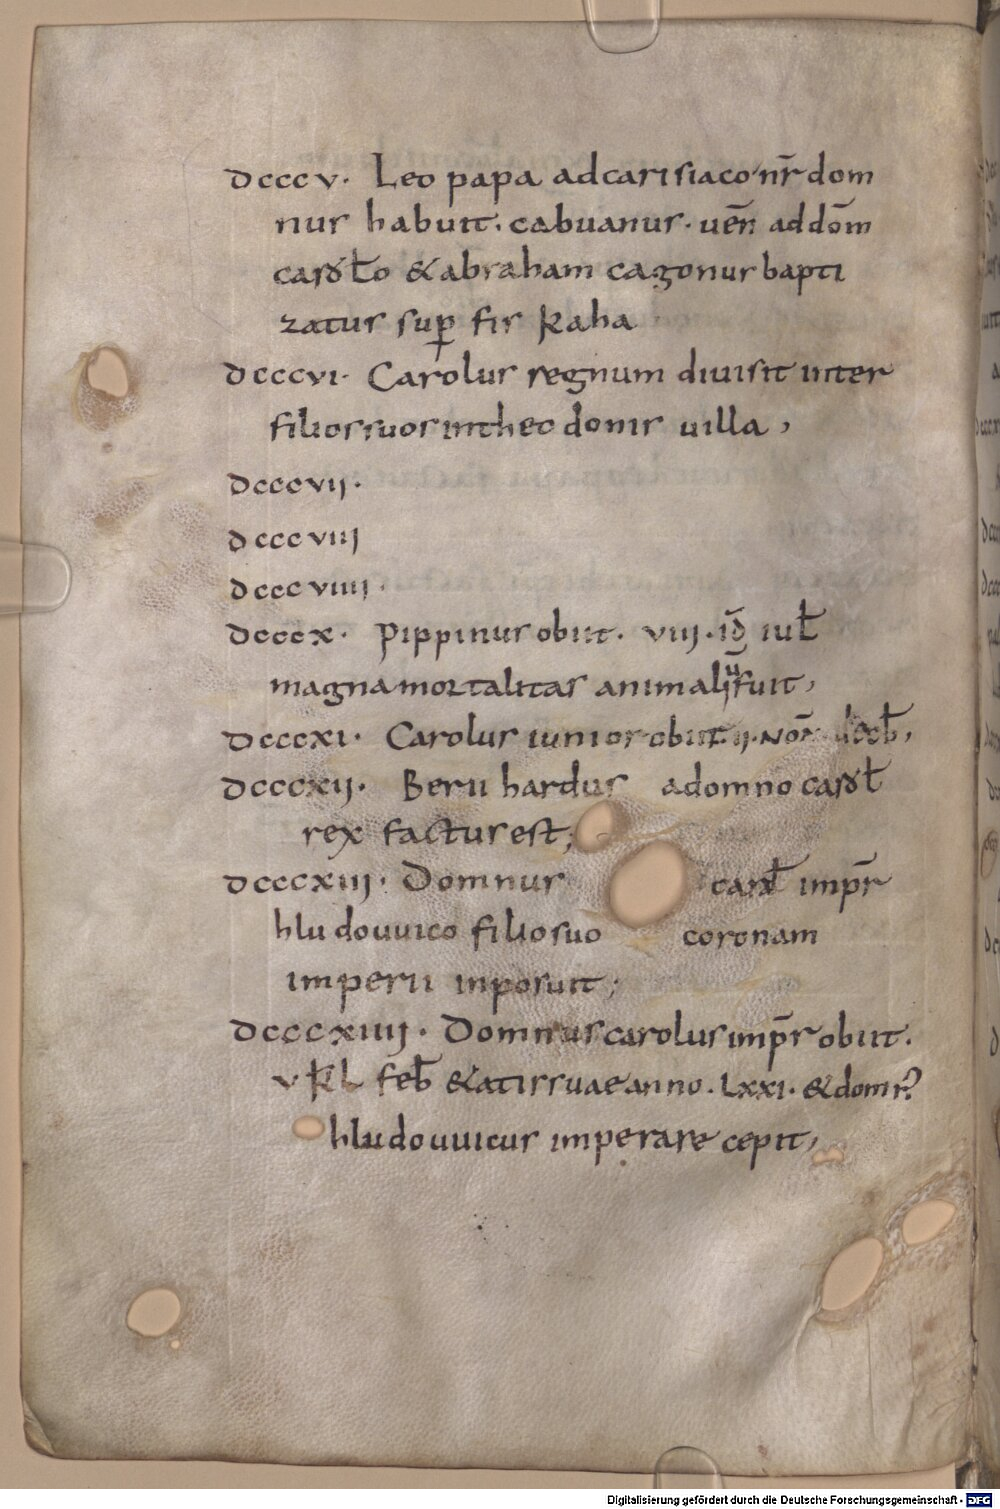 dcccv. Leo papa adcarisiaco nr̄ dom
nus habuit. cabuanus. uen̄ ad dōm
carɣł̄o & abraham cagonus bapti
zatus sup̱ fis kaha
dcccvi. Carolus regnum diuisit inter
filios suos intheodonis uilla,
dcccvii.
dcccviii
dcccviiii.
dcccx. Pippinus obiit. viii. id̄ iul̄
magna mortalitas animaliu fuit,
dcccxi. Carolus iunior obiit. ii. non̄ deceb̄,
dcccxii. Bernhardus a domno carol̄
rex factus est;
dcccxiii. Domnus carol̄ imp̄r
hludouuico filio suo coronam
imperii inposuit;
dcccxiiii. Domnus carolus imp̄r obiit.
v kl̄ feb̄ & atis suae anno. Lxxi. & domn̄s
hludouuicus imperare cepit,
Digitalisierung gefördert durch die Deutsche Forschungsgemeinschaft - DFG